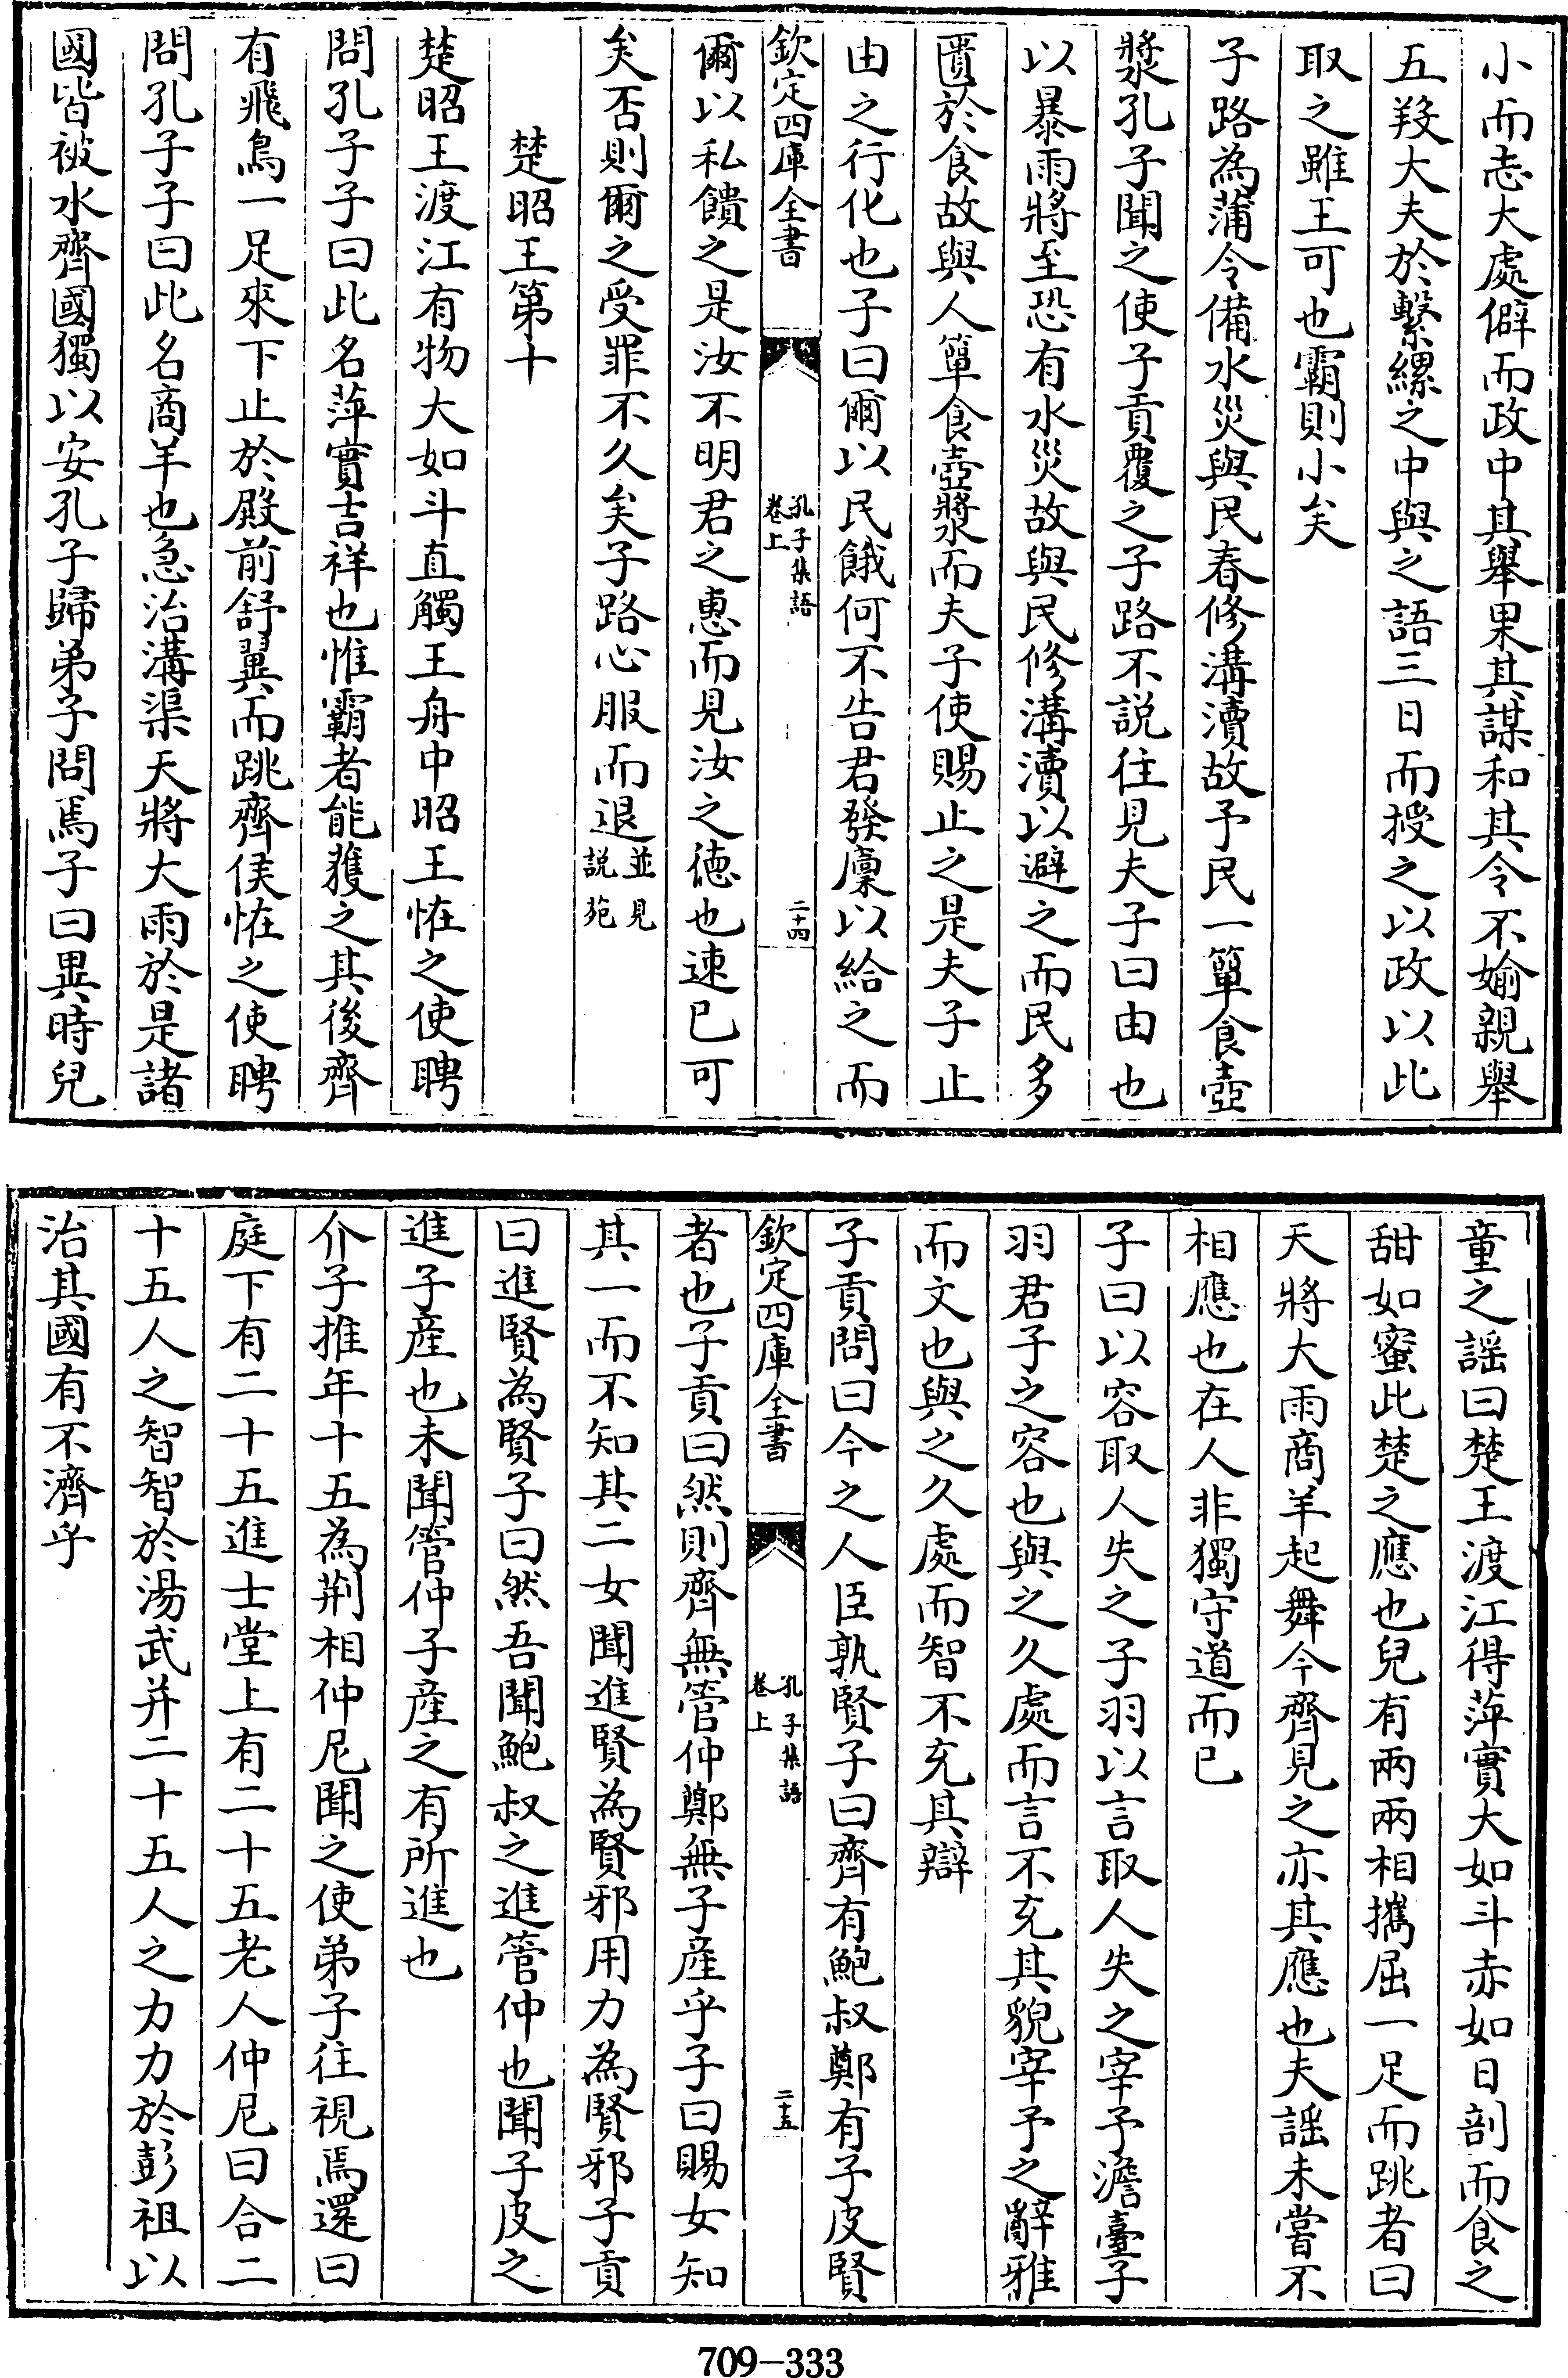 小而志大處僻而政中其舉果其謀和其令不媮親舉
五羖大夫於繫縲之中與之語三日而授之以政以此
取之雖王可也霸則小矣
子路為蒲令備水災與民春修溝瀆故予民一簞食壺
漿孔子聞之使子貢覆之子路不説往見夫子曰由也
以暴雨將至恐有水災故與民修溝瀆以避之而民多
匱於食故與人簞食壺漿而夫子使賜止之是夫子止
由之行化也子曰爾以民餓何不告君發廩以給之而
欽定四庫全書
孔子集語
卷上
二十四
爾以私饋之是汝不明君之惠而見汝之德也速已可
矣否則爾之受罪不久矣子路心服而退並見
説苑
楚昭王第十
楚昭王渡江有物大如斗直觸王舟中昭王恠之使聘
問孔子子曰此名萍實吉祥也惟霸者能獲之其後齊
有飛鳥一足來下止於殿前舒翼而跳齊侯恠之使聘
問孔子子曰此名商羊也急治溝渠天將大雨於是諸
國皆被水齊國獨以安孔子歸弟子問焉子曰異時兒
童之謡曰楚王渡江得萍實大如斗赤如日剖而食之
甜如蜜此楚之應也兒有兩兩相攜屈一足而跳者曰
天將大雨商羊起舞今齊見之亦其應也夫謡未嘗不
相應也在人非獨守道而已
子曰以容取人失之子羽以言取人失之宰予澹臺子
羽君子之容也與之久處而言不充其貌宰予之辭雅
而文也與之久處而智不充其辯
子貢問曰今之人臣孰賢子曰齊有鮑叔鄭有子皮賢
欽定四庫全書
孔子集語
卷上
二十五
者也子貢曰然則齊無管仲鄭無子產乎子曰賜女知
其一而不知其二女聞進賢為賢邪用力為賢邪子貢
曰進賢為賢子曰然吾聞鮑叔之進管仲也聞子皮之
進子產也未聞管仲子產之有所進也
介子推年十五為荆相仲尼聞之使弟子往視焉還曰
庭下有二十五進士堂上有二十五老人仲尼曰合二
十五人之智智於湯武并二十五人之力力於彭祖以
治其國有不濟乎
709-333